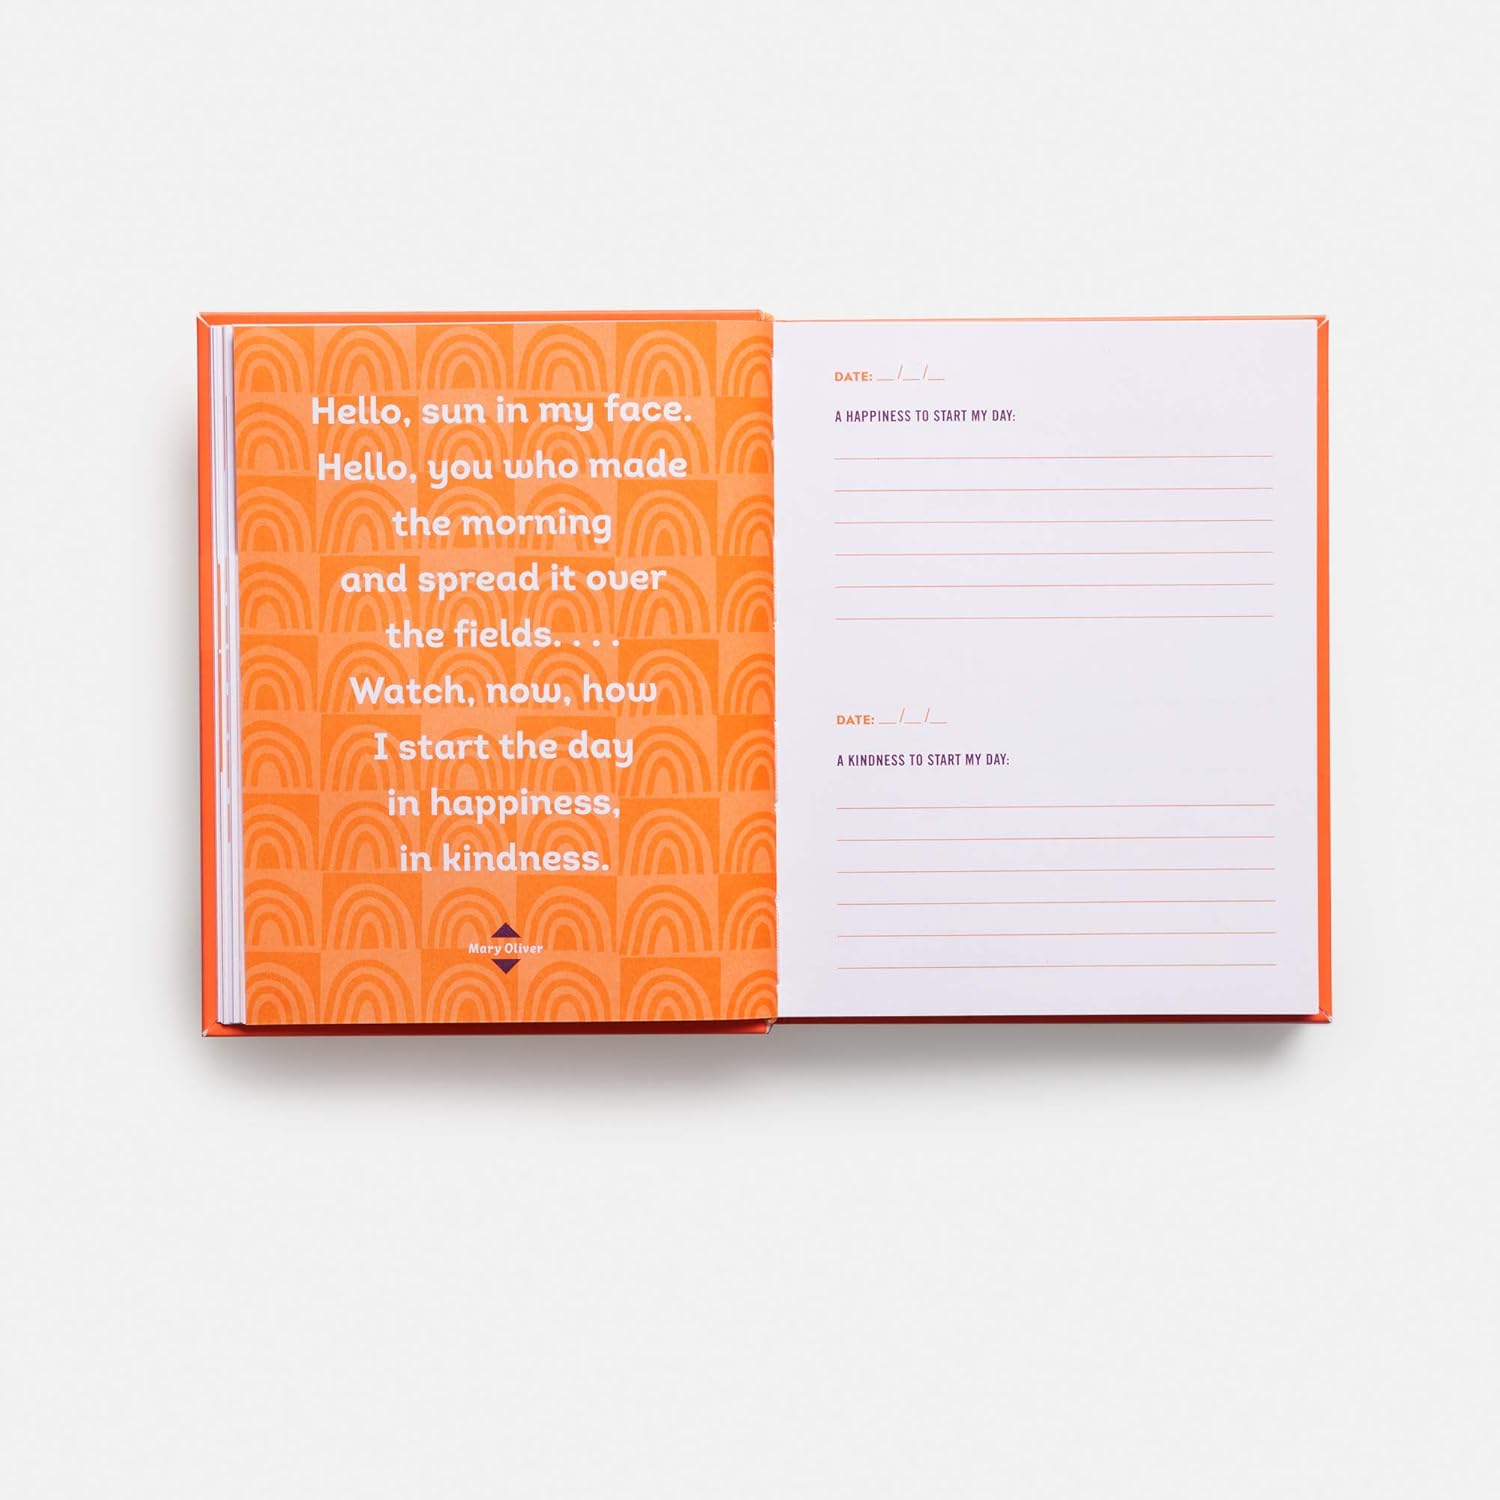 Hello, sun in my face.
Hello, you who made
the morning
and spread it over
the fields. . . .
Watch, now, how
I start the day
in happiness,
in kindness.
Mary Oliver
DATE: __/__/__
A HAPPINESS TO START MY DAY:
DATE: __/__/__
A KINDNESS TO START MY DAY: